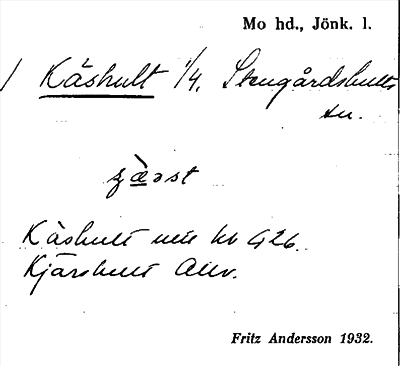 Mo hd., Jönk. l.
/ Kåshult 1/4. Stengårdshults
sn.
Kåshult
Kjärshult Allv.
Fritz Andersson 1932.